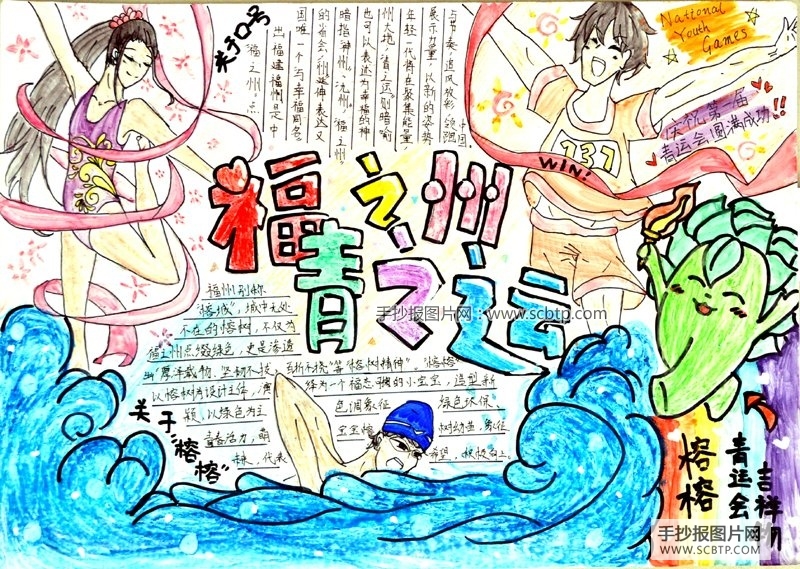 National
Youth
Games
庆祝第一届
青运会圆满成功!!
WIN!
131
关于口号
"福之州"点
出福建福州是中
国唯一个
的省会州延伸表达义
暗指"神州"
"福之州"
也可以表达为幸福的神
州大地"青之运"则暗喻
年轻一代将在聚集能量
展示力量 以新的姿势
与节奏追风放彩 领跑
中国
福之州
青之运
手抄报图片网:www.scbtp.com
福州别称
"榕城",城中无处
不在的榕树,不仅为
福州点缀绿色,更是渗透
出 厚德载物,坚韧不拔,百折不挠"等榕树精神"。"榕榕"
以榕树为设计主体,演绎为一个福态 的小宝宝,造型新
颖,以绿色为主色调象征绿色环保、
青春活力,萌宝宝榕树幼苗,象征
未来,代表希望,积极向上。
关于"榕榕"
榕榕
青运会
吉祥
手抄报图片网
WWW.SCBTP.COM